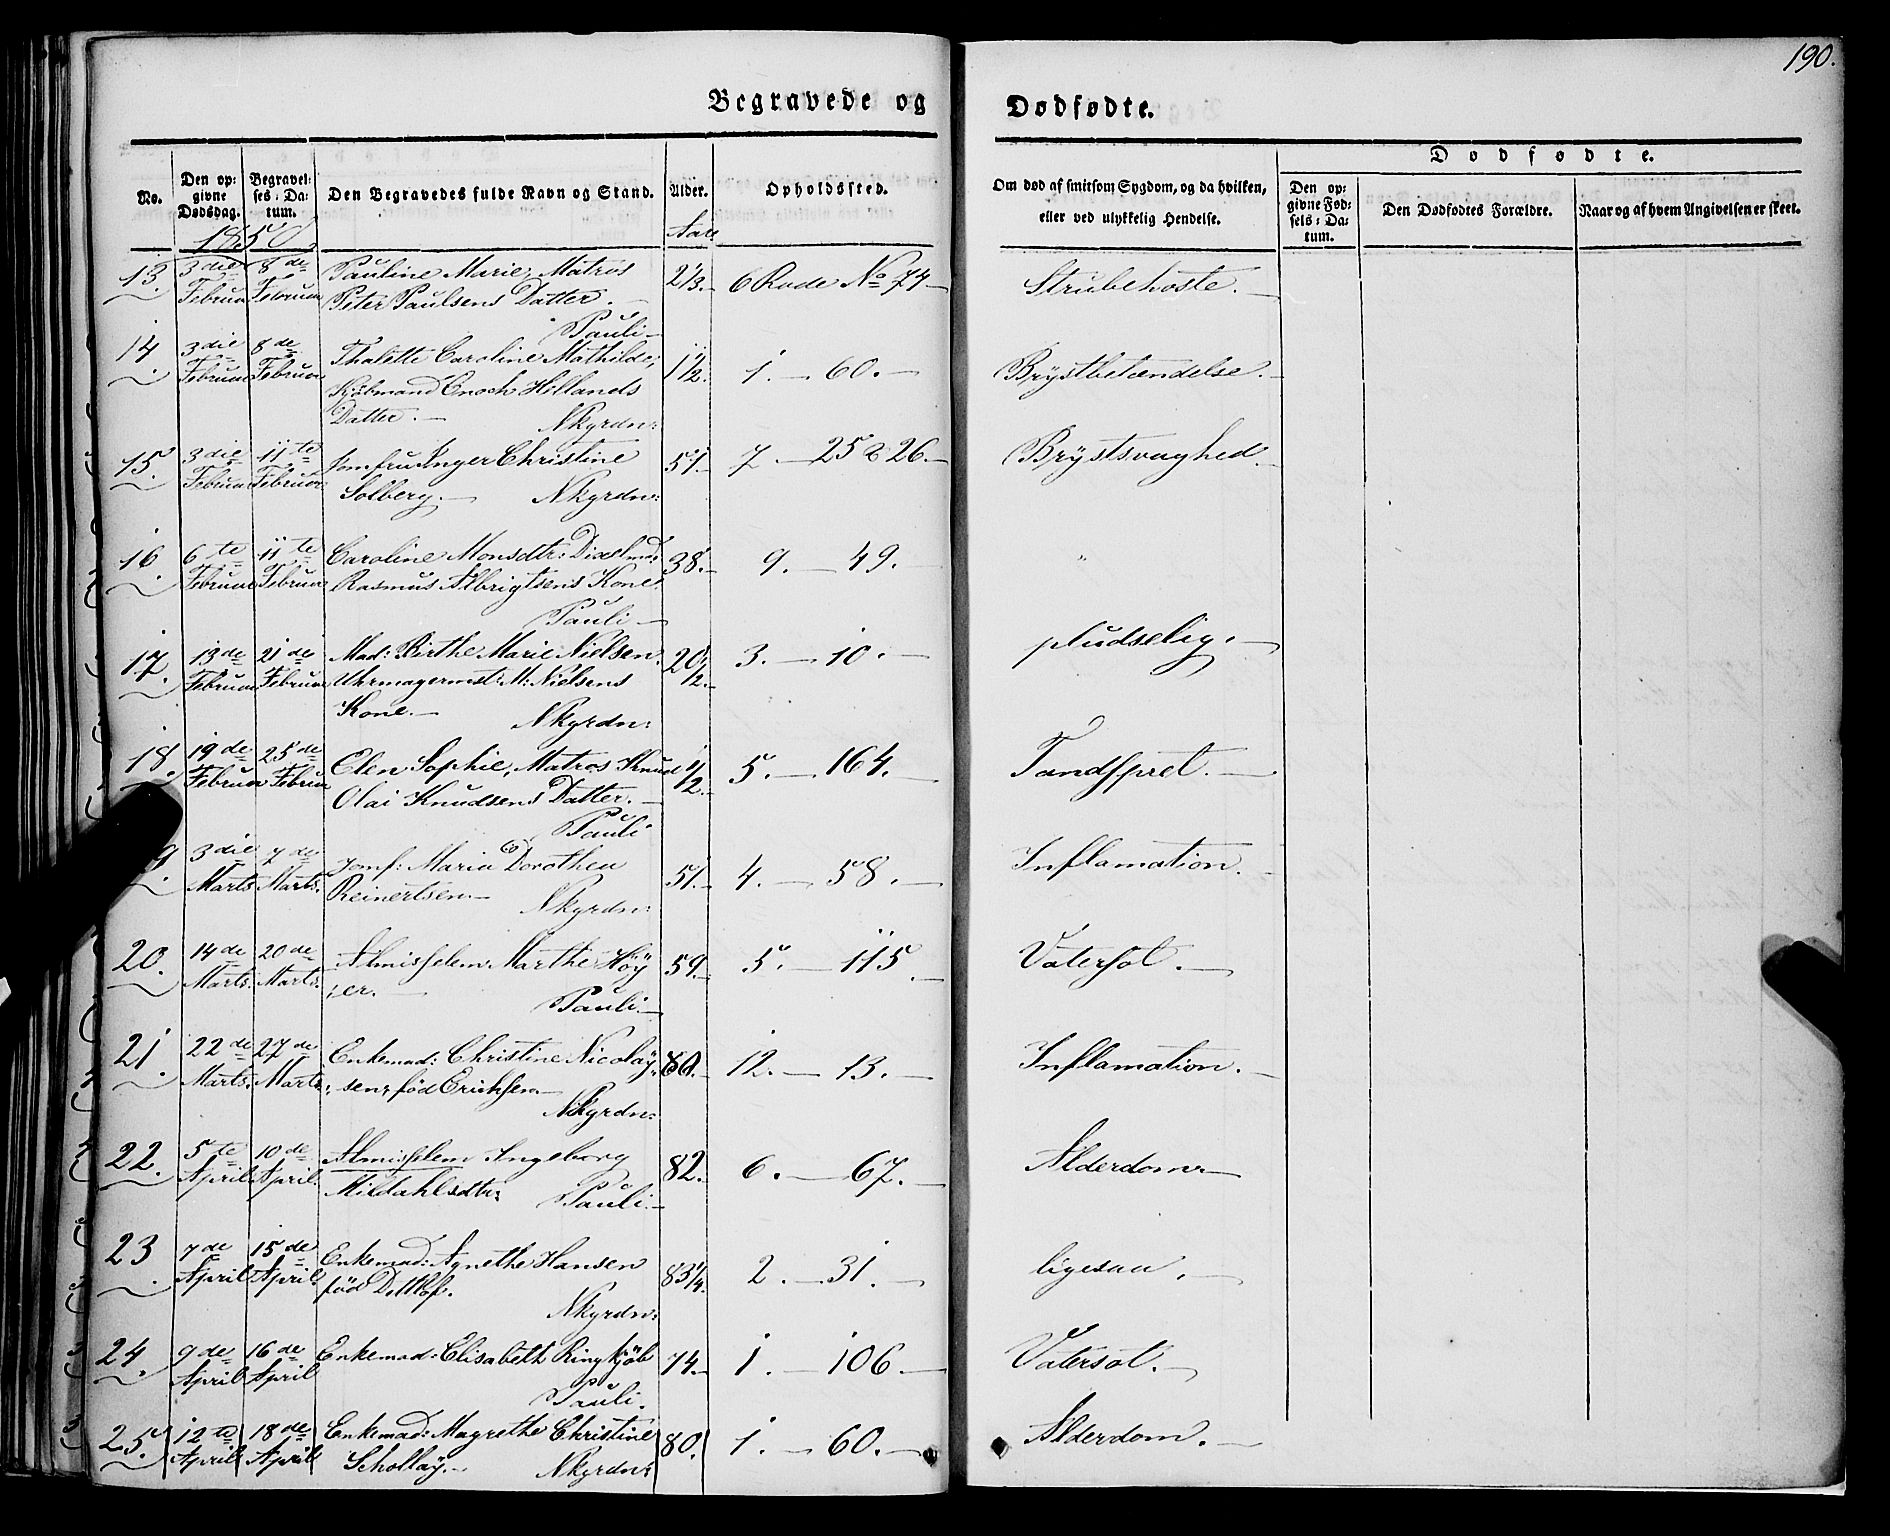 190.
Begravede og Dødfødte.
No.
Den op=
givne
Dødsdag.
Begravel=
ses=Da=
tum.
Den Begravedes fulde Navn og Stand.
Alder.
Opholdssted.
Om død af smitsom Sygdom, og da hvilken,
eller ved ulykkelig Hendelse.
Dødfødte.
Den op=
givne Fød=
sels=Da=
tum.
Den Dødfødtes Forældre.
Naar og af hvem Angivelsen er skeet.
1850
Aar
13. 3die 8de Pauline Marie, Matros 2 1/3. 6 Rode No 74 Strubehoste.
Februar Februar Peter Paulsens Datter.
Pauli
14. 3die 8de Thalette Caroline Mathilde, 1 1/2. 1. 60. Brystbetændelse.
Februar Februar Kjøbmand Enoch Hillands
Datter. Nkyrdn:
15. 3die 11te Jomfru Inger Christine 51. 7 25 & 26. Brystsvaghed.
Februar Februar Solberg. Nkyrdn:
16. 6te 11te Caroline Monsdtr: 38. 9. 49. "
Februar Februar Rasmus Albrigtsens Kone.
Pauli
17. 13de 21de Mad: Birthe Marie Nielsen. 20 1/2. 3. 10. pludselig.
Februar Februar Uhrmagermst: M: Nielsens
Kone. Nkyrdn:
18. 19de 25de Elen Sophie, Matros Knud 1/2. 5. 164. Tandspret.
Februar Februar Olai Knudsens Datter.
Pauli
9. 3die 7de Jomf: Maria Dorothea 51. 4. 58. Inflamation.
Marts Marts. Reinertsen. Nkyrdn:
20. 14de 20de Almisselem Marthe Höÿ 59. 5. 115. Vatersot.
Marts. Marts. :er. Pauli.
21. 22de 27de Enkemad: Christine Nicolaÿ: 80. 12. 13. Inflamation.
Marts. Marts :sen, föd Erichsen. Nkyrdn:
22. 5te 10de Almisselem Ingeborg 82. 6. 67. Alderdom
April April. Mildahlsdtr: Pauli.
23. 7de 15de Enkemad: Agnethe Hansen 83 1/4. 2. 31. ligesaa.
April April. föd Ditlof. Nkyrdn:
24. 9de 16de Enkemad: Elisabeth Ringkjöb 74. 1. 106 Vatersot.
April April Pauli.
25. 12te 18de Enkemad: Magrethe Christine 80. 1. 60. Alderdom.
April April Schollaÿ. Nkyrdn: